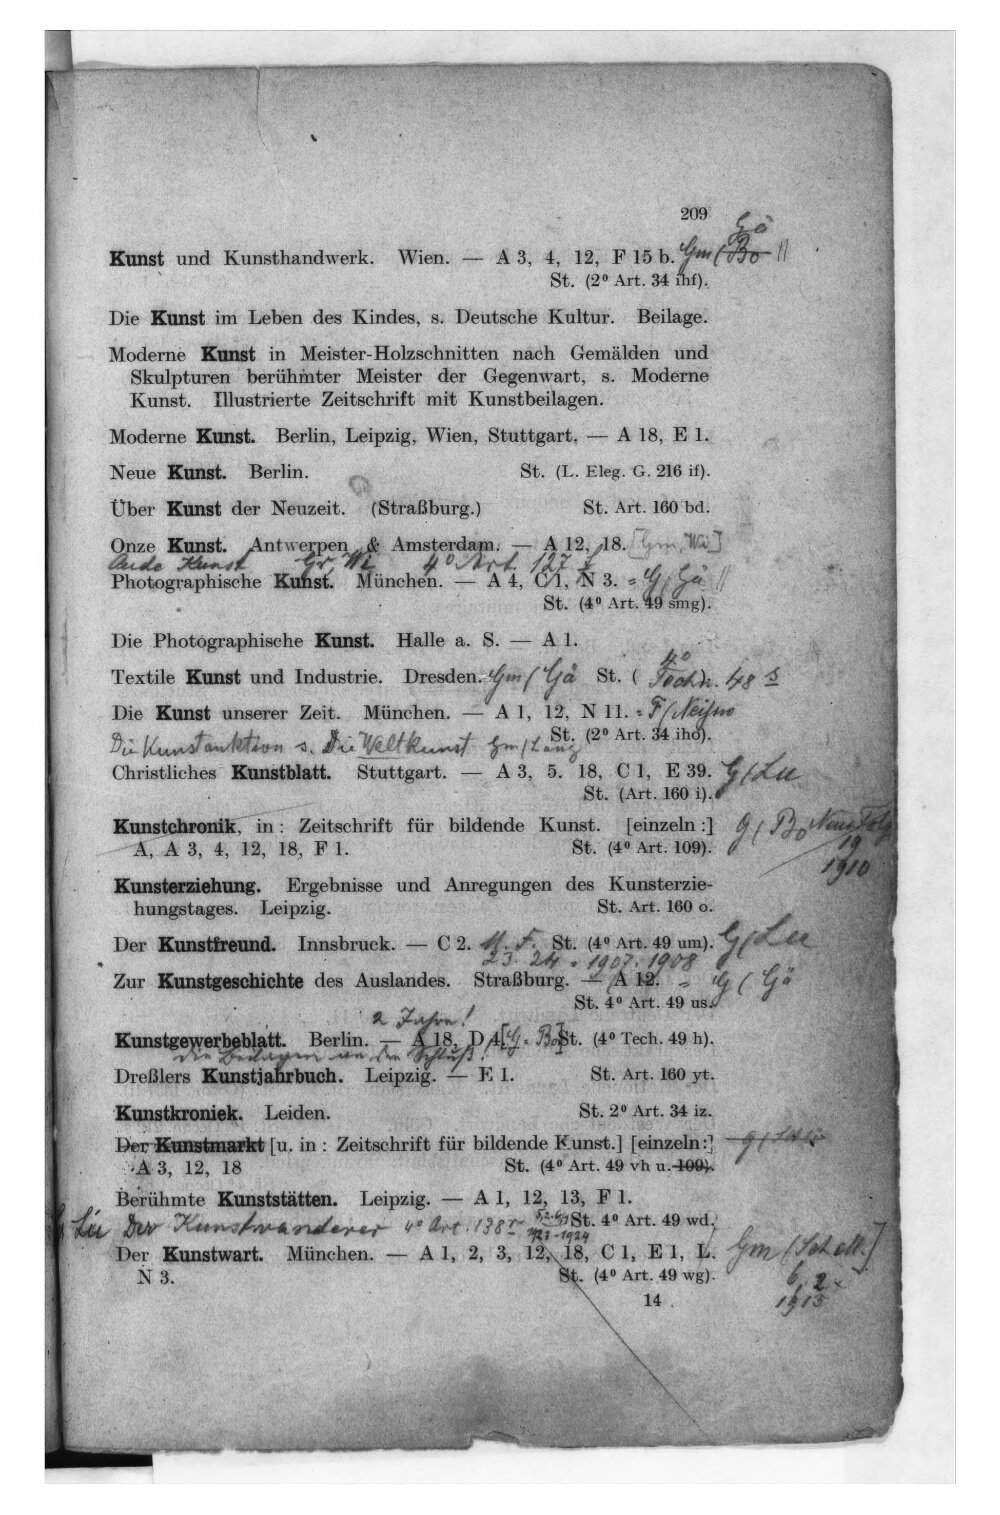 209
Gä
Kunst und Kunsthandwerk. Wien. — A 3, 4, 12, F 15 b. Gm ( Bo
St. (2⁰ Art. 34 ihf).
Die Kunst im Leben des Kindes, s. Deutsche Kultur. Beilage.
Moderne Kunst in Meister-Holzschnitten nach Gemälden und
Skulpturen berühmter Meister der Gegenwart, s. Moderne
Kunst. Illustrierte Zeitschrift mit Kunstbeilagen.
Moderne Kunst. Berlin, Leipzig, Wien, Stuttgart. — A 18, E 1.
Neue Kunst. Berlin. St. (L. Eleg. G. 216 if).
Über Kunst der Neuzeit. (Straßburg.) St. Art. 160 bd.
Onze Kunst. Antwerpen & Amsterdam. — A 12, 18. [Gm, Wi]
Oude Kunst Gr, Wi 4⁰ Art. 127
Photographische Kunst. München. — A 4, C 1, N 3. = G ( Gä
St. (4⁰ Art. 49 smg).
Die Photographische Kunst. Halle a. S. — A 1.
4⁰
Textile Kunst und Industrie. Dresden. Gm ( Gä St. ( Techn. 48 s
Die Kunst unserer Zeit. München. — A 1, 12, N 11. = F
St. (2⁰ Art. 34 iho).
Die Kunstauktion s. Die Weltkunst Gm / Lang
Christliches Kunstblatt. Stuttgart. — A 3, 5. 18, C 1, E 39. G ( Lu
St. (Art. 160 i).
Kunstchronik, in : Zeitschrift für bildende Kunst. [einzeln :] G ( Bo Neue Folg
A, A 3, 4, 12, 18, F 1. St. (4⁰ Art. 109). 19
1910
Kunsterziehung. Ergebnisse und Anregungen des Kunsterzie-
hungstages. Leipzig. St. Art. 160 o.
Der Kunstfreund. Innsbruck. — C 2. N. F. St. (4⁰ Art. 49 um). G ( Lu
23. 24 = 1907. 1908
Zur Kunstgeschichte des Auslandes. Straßburg. — A 12. = G ( Gä
St. 4⁰ Art. 49 us.
2 Jahre!
Kunstgewerbeblatt. Berlin. — A 18, D 4. [G = Bo] St. (4⁰ Tech. 49 h).
die Beilagen an den Schluß!
Dreßlers Kunstjahrbuch. Leipzig. — E 1. St. Art. 160 yt.
Kunstkroniek. Leiden. St. 2⁰ Art. 34 iz.
Der Kunstmarkt [u. in : Zeitschrift für bildende Kunst.] [einzeln:]
A 3, 12, 18 St. (4⁰ Art. 49 vh u. 109).
Berühmte Kunststätten. Leipzig. — A 1, 12, 13, F 1.
St. 4⁰ Art. 49 wd.
Lü Der Kunstwanderer 4⁰ Art. 138 r 1923-1924
Der Kunstwart. München. — A 1, 2, 3, 12, 18, C 1, E 1, L. Gm
N 3. St. (4⁰ Art. 49 wg). 6. 2
14 1913